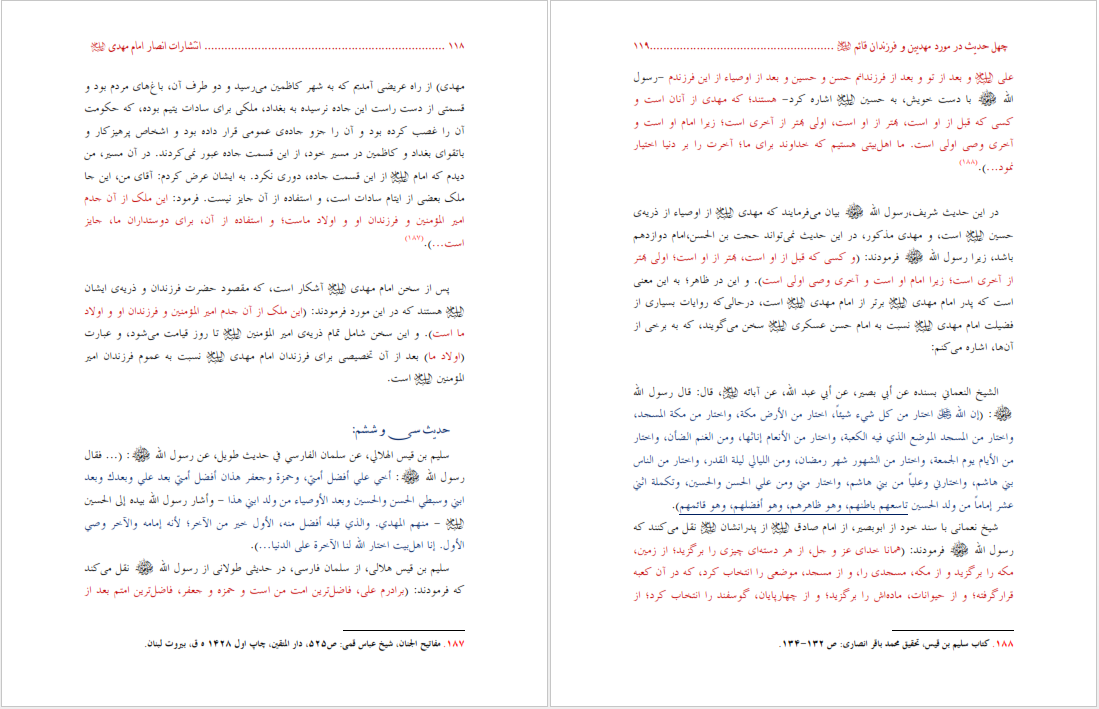 ۱۱۸ ........................................................................ انتشارات انصار امام مهدی ﵇
مهدی) از راه عریضی آمدیم که به شهر کاظمین می‌رسید و دو طرف آن، باغ‌های مردم بود و
قسمتی از دست راست این جاده نرسیده به بغداد، ملکی برای سادات یتیم بوده، که حکومت
آن را غصب کرده بود و آن را جزو جاده‌ی عمومی قرار داده بود و اشخاص پرهیزکار و
باتقوای بغداد و کاظمین در مسیر خود، از این قسمت جاده عبور نمی‌کردند. در آن مسیر، من
دیدم که امام ﵇ از این قسمت جاده، دوری نکرد. به ایشان عرض کردم: آقای من، این جا
ملک بعضی از ایتام سادات است، و استفاده از آن جایز نیست. فرمود: این ملک از آن جدم
امیر المؤمنین و فرزندان او و اولاد ماست؛ و استفاده از آن، برای دوستداران ما، جایز
است...).(۱۸۷)
پس از سخن امام مهدی ﵇ آشکار است، که مقصود حضرت فرزندان و ذریه‌ی ایشان
﵇ هستند که در این مورد فرمودند: (این ملک از آن جدم امیر المؤمنین و فرزندان او و اولاد
ما است). و این سخن شامل تمام ذریه‌ی امیر المؤمنین ﵇ تا روز قیامت می‌شود، و عبارت
(اولاد ما) بعد از آن تخصیصی برای فرزندان امام مهدی ﵇ نسبت به عموم فرزندان امیر
المؤمنین ﵇ است.
حدیث سی و ششم:
سلیم بن قیس الهلالي، عن سلمان الفارسي في حدیث طویل، عن رسول الله ﷺ: (... فقال
رسول الله ﷺ: أخي علي أفضل أمتي، وحمزة وجعفر هذان أفضل أمتي بعد علي وبعدك وبعد
ابني وسبطي الحسن والحسین وبعد الأوصیاء من ولد ابني هذا - وأشار رسول الله بیده إلى الحسین
﵇ - منهم المهدي. والذي قبله أفضل منه، الأول خیر من الآخر؛ لأنه إمامه والآخر وصي
الأول. إنا اهل‌بیت اختار الله لنا الآخرة على الدنیا...).
سلیم بن قیس هلالی، از سلمان فارسی، در حدیثی طولانی از رسول الله ﷺ نقل می‌کند
که فرمودند: (برادرم علی، فاضل‌ترین امت من است و حمزه و جعفر، فاضل‌ترین امتم بعد از
۱۸۷. مفاتیح الجنان، شیخ عباس قمی: ص۵۲۵، دار المتقین، چاپ اول ۱۴۲۸ ه ق، بیروت لبنان.
چهل حدیث در مورد مهدیین و فرزندان قائم ﵇ .......................................................۱۱۹
علی ﵇ و بعد از تو و بعد از فرزندانم حسن و حسین و بعد از اوصیاء از این فرزندم –رسول
الله ﷺ با دست خویش، به حسین ﵇ اشاره کرد– هستند؛ که مهدی از آنان است و
کسی که قبل از او است، بهتر از او است، اولی بهتر از آخری است؛ زیرا امام او است و
آخری وصی اولی است. ما اهل‌بیتی هستیم که خداوند برای ما؛ آخرت را بر دنیا اختیار
نمود...).(۱۸۸)
در این حدیث شریف،رسول الله ﷺ بیان می‌فرمایند که مهدی ﵇ از اوصیاء از ذریه‌ی
حسین ﵇ است، و مهدی مذکور، در این حدیث نمی‌تواند حجت بن الحسن،امام دوازدهم
باشد، زیرا رسول الله ﷺ فرمودند: (و کسی که قبل از او است، بهتر از او است؛ اولی بهتر
از آخری است؛ زیرا امام او است و آخری وصی اولی است). و این در ظاهر؛ به این معنی
است که پدر امام مهدی ﵇ برتر از امام مهدی ﵇ است، درحالی‌که روایات بسیاری از
فضیلت امام مهدی ﵇ نسبت به امام حسن عسکری ﵇ سخن می‌گویند، که به برخی از
آن‌ها، اشاره می‌کنم:
الشیخ النعماني بسنده عن أبي بصیر، عن أبي عبد الله، عن آبائه ﵇، قال: قال رسول الله
ﷺ: (إن الله ﷻ اختار من كل شيء شیئاً، اختار من الأرض مكة، واختار من مكة المسجد،
واختار من المسجد الموضع الذي فیه الكعبة، واختار من الأنعام إناثها، ومن الغنم الضأن، واختار
من الأیام یوم الجمعة، واختار من الشهور شهر رمضان، ومن اللیالي لیلة القدر، واختار من الناس
بني هاشم، واختارني وعلیاً من بني هاشم، واختار مني ومن علي الحسن والحسین، وتكملة اثني
عشر إماماً من ولد الحسین تاسعهم باطنهم، وهو ظاهرهم، وهو أفضلهم، وهو قائمهم).
شیخ نعمانی با سند خود از ابوبصیر، از امام صادق ﵇ از پدرانشان ﵇ نقل می‌کنند که
رسول الله ﷺ فرمودند: (همانا خدای عز و جل، از هر دسته‌ای چیزی را برگزید؛ از زمین،
مکه را برگزید و از مکه، مسجدی را، و از مسجد، موضعی را انتخاب کرد، که در آن کعبه
قرارگرفته؛ و از حیوانات، ماده‌اش را برگزید؛ و از چهارپایان، گوسفند را انتخاب کرد؛ از
۱۸۸. کتاب سلیم بن قیس، تحقیق محمد باقر انصاری: ص ۱۳۲-۱۳۴.